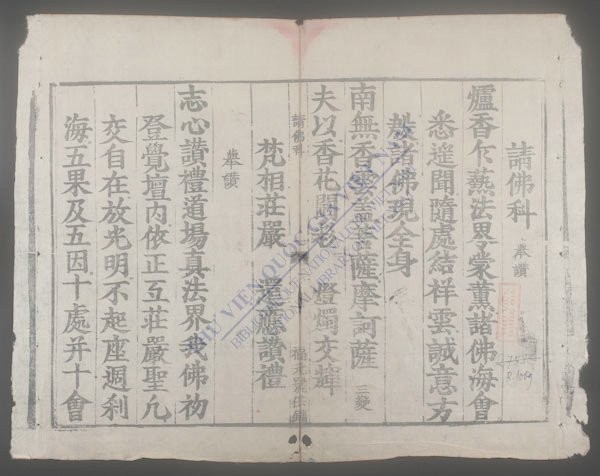 請佛科 舉讚
爐香乍爇法界蒙薰諸佛海會
悉遥聞隨處結祥雲誠意方
殷諸佛現全身
南無香雲盖菩薩摩訶薩 三變
夫以香花開老 燈燭交輝
請佛科
梵相莊嚴 還應讚禮
舉讚
志心讚禮道場真法界我佛初
登覺壇内依正互莊嚴聖凡
交自在放光明不起座週刹
海五果及五因十處并十會
THƯ VIỆN QUỐC GIA VIỆT NAM